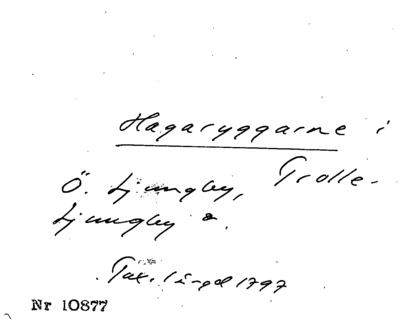 Hagaryggarne i
Ö. Ljungby, Trolle-
Ljungby
Tax. längd 1797
Nr 10877